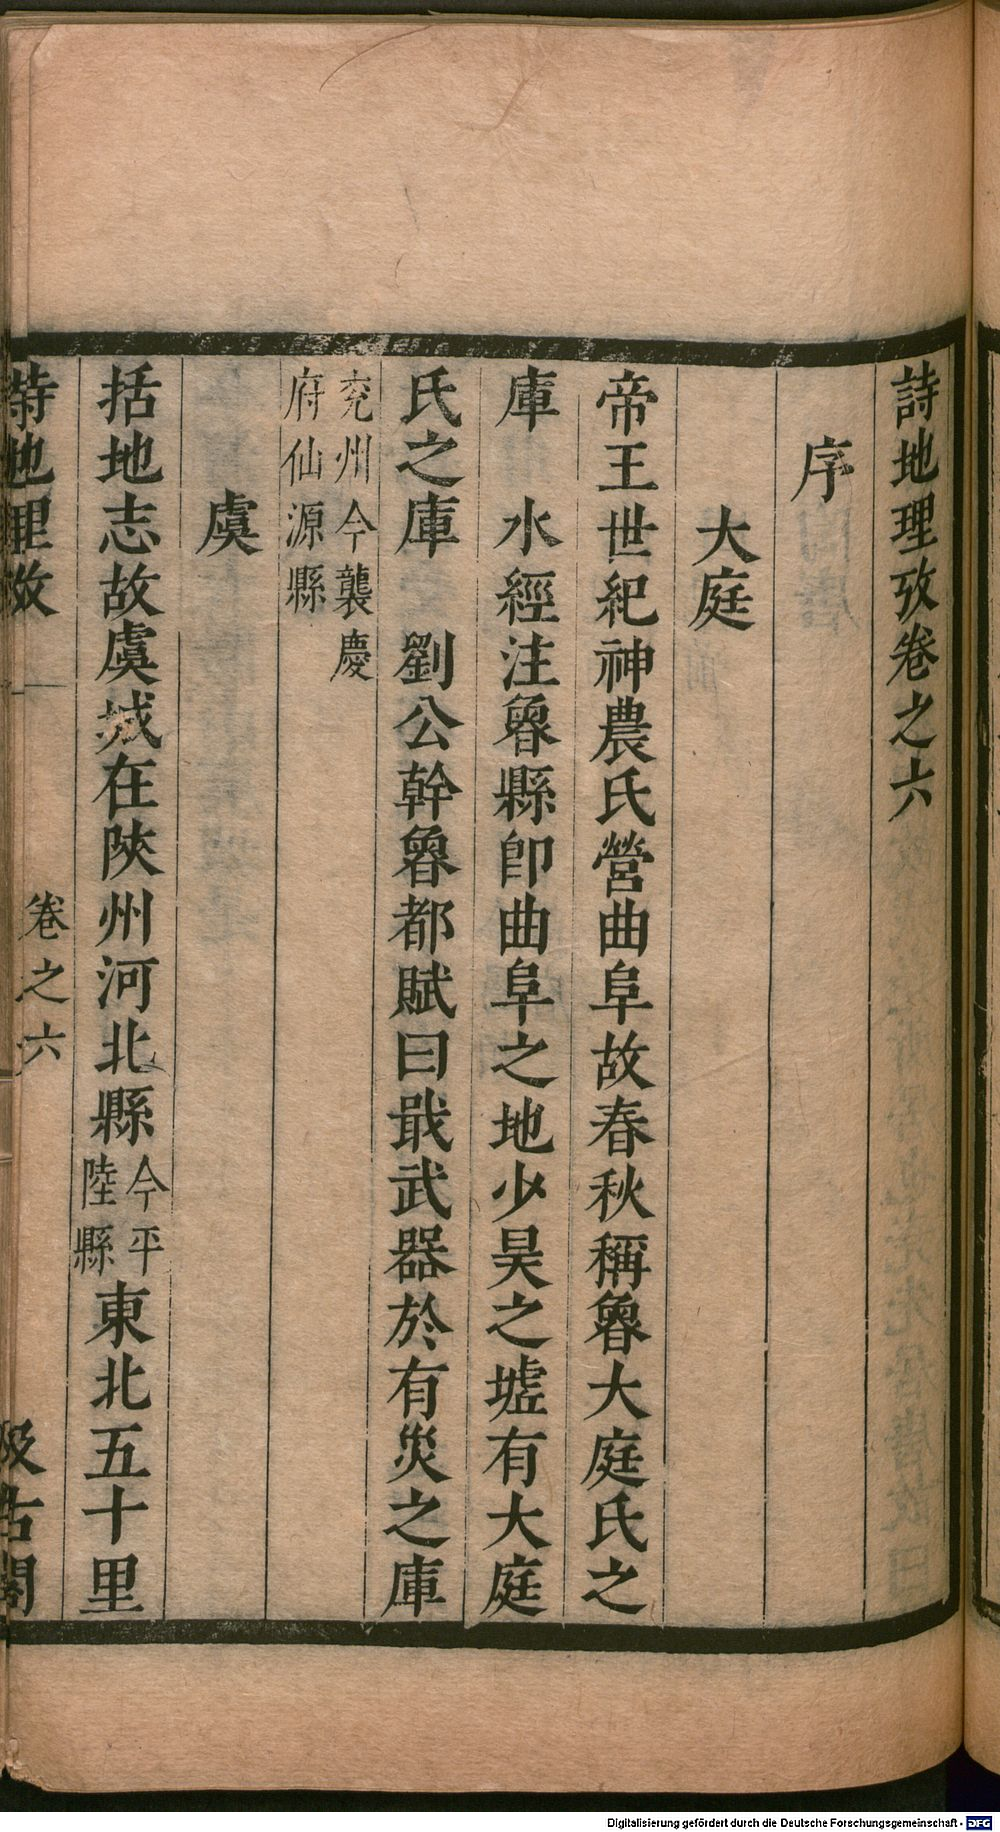 詩地理攷卷之六
序
大庭
帝王世紀神農氏營曲阜故春秋稱魯大庭氏之
庫 水經注魯縣卽曲阜之地少昊之墟有大庭
氏之庫 劉公幹魯都賦曰戢武器於有災之庫
兖州今襲慶
府仙源縣
虞
括地志故虞城在陝州河北縣今平陸縣東北五十里
詩地理攷 卷之六 汲古閣
Digitalisierung gefördert durch die Deutsche Forschungsgemeinschaft - DFG